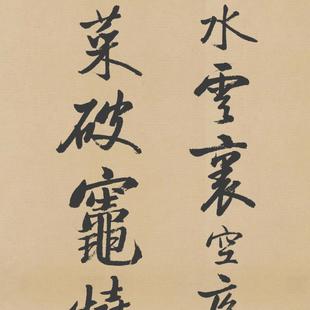 水雲裏空
菜破竈